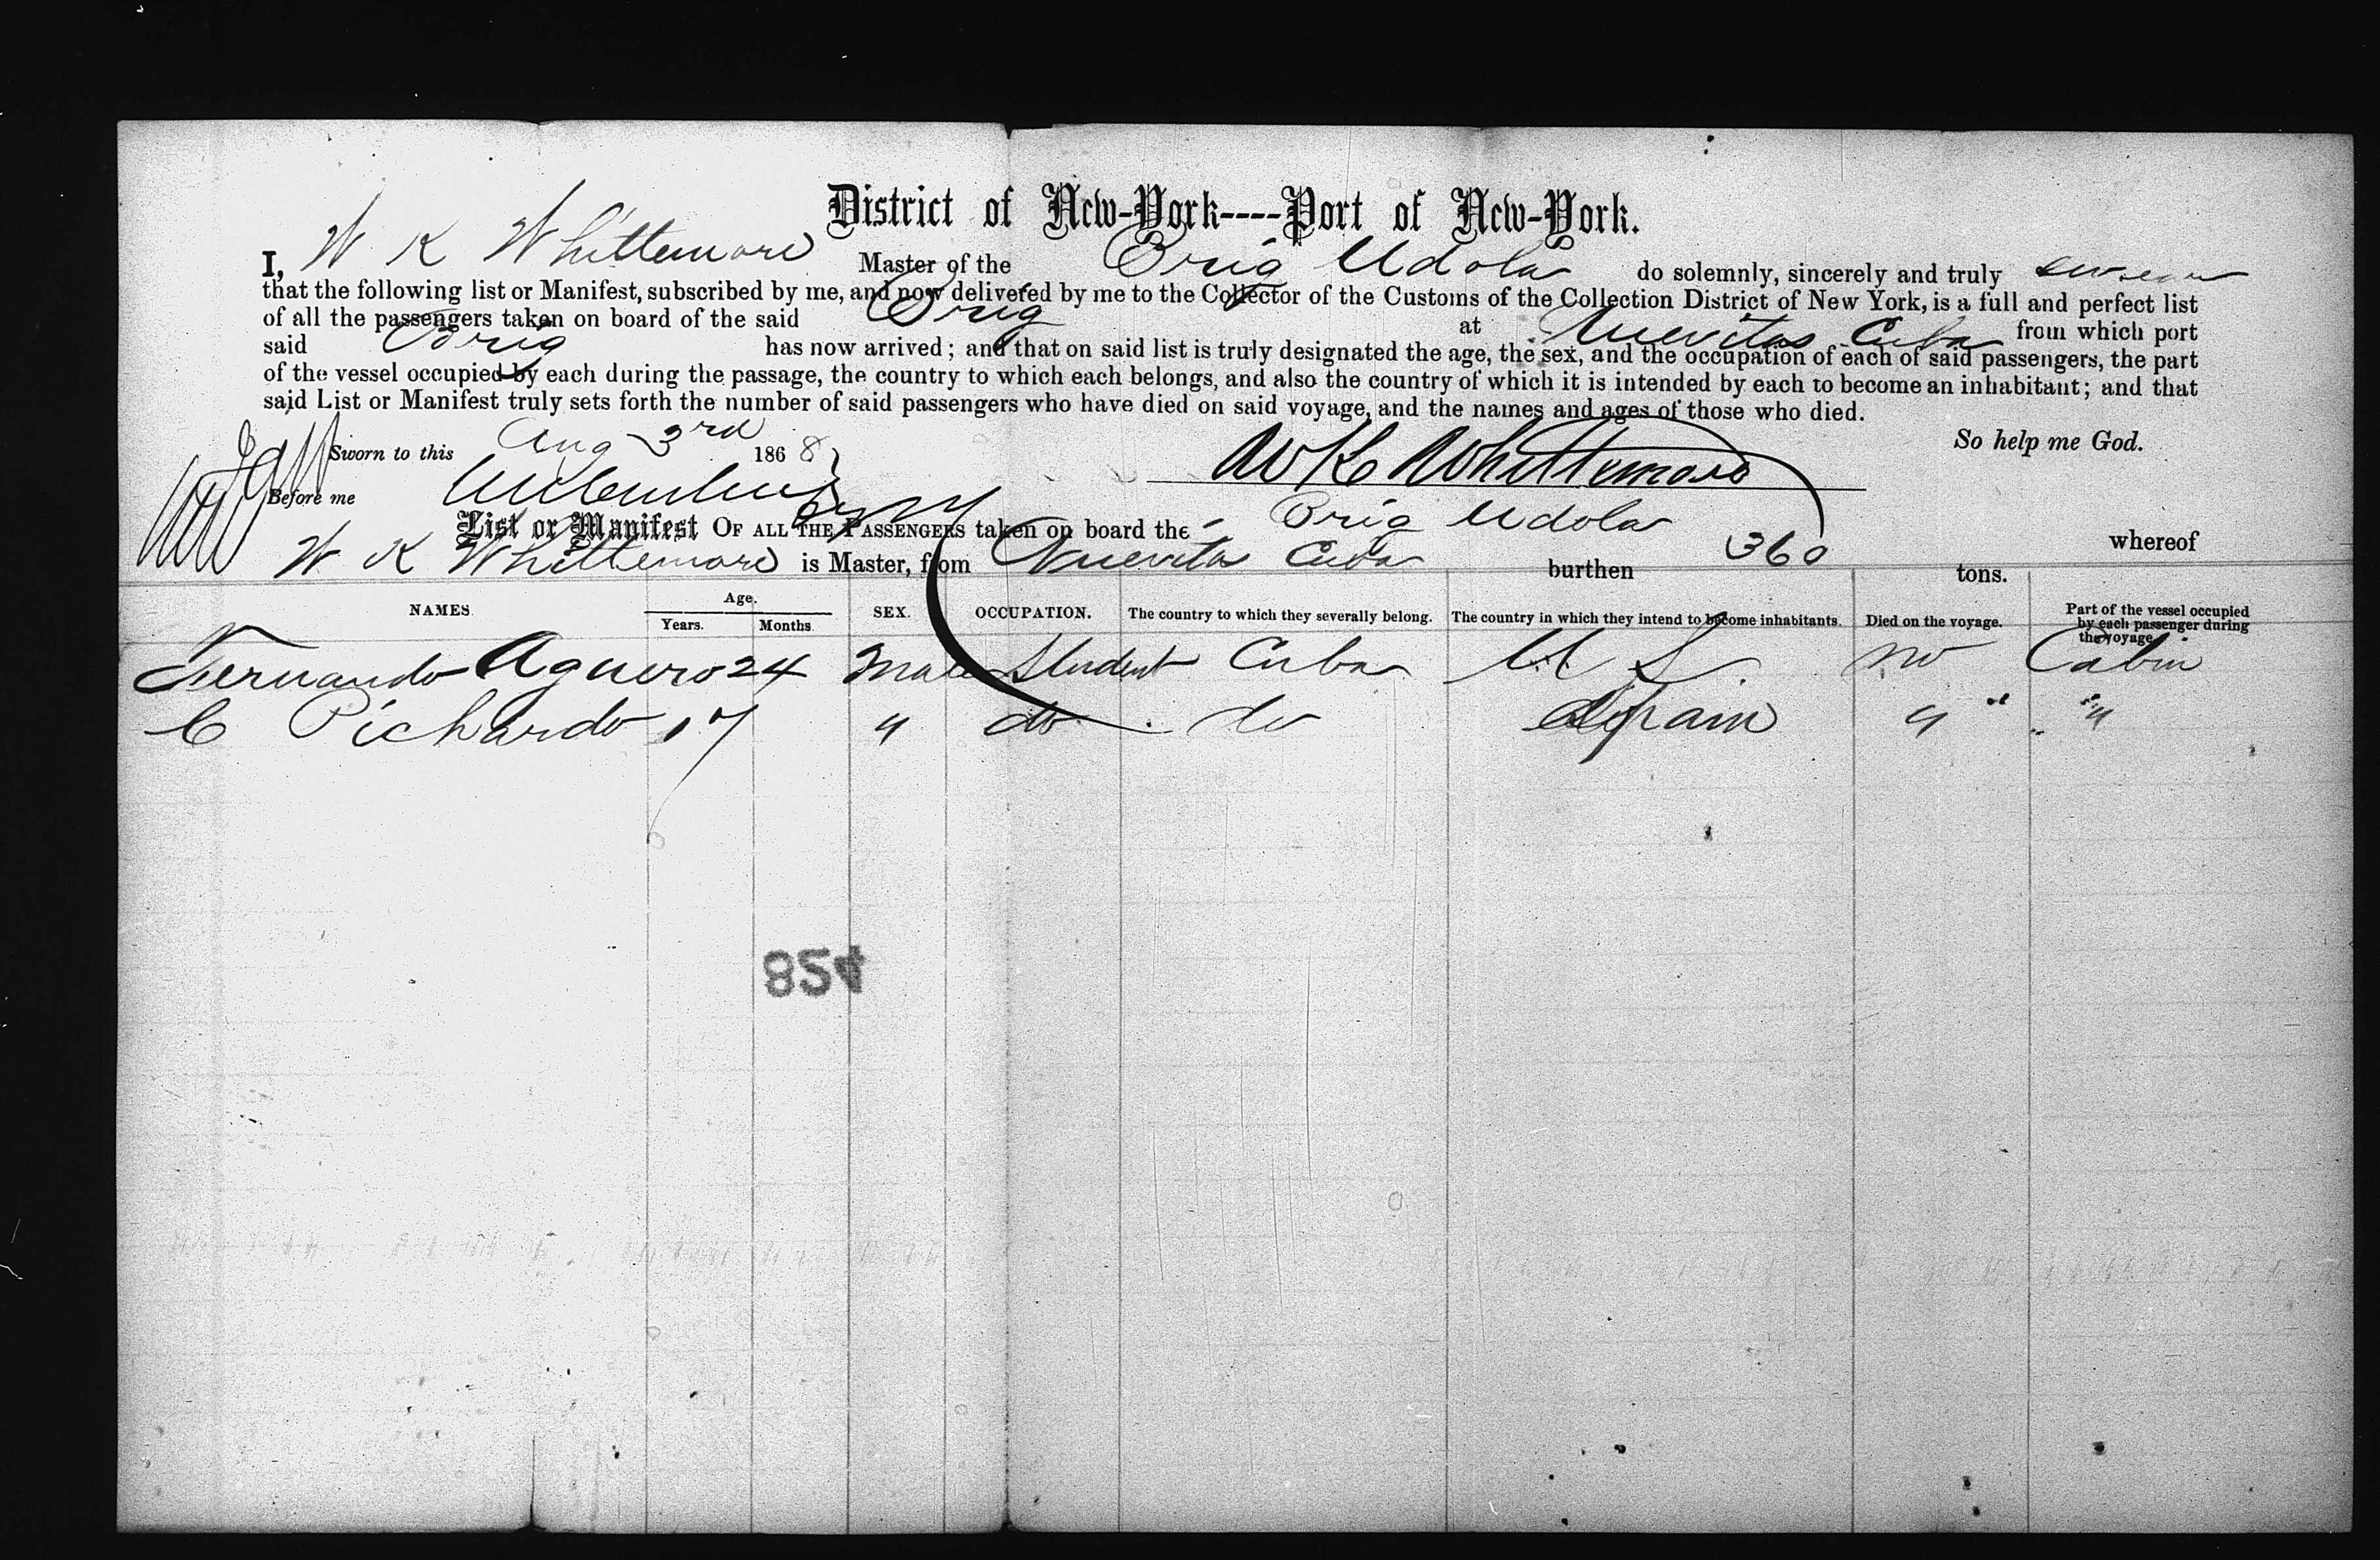 District of New-York----Port of New-York.
I, W K Whittemore Master of the Brig Udola do solemnly, sincerely and truly swear
that the following list or Manifest, subscribed by me, and now delivered by me to the Collector of the Customs of the Collection District of New York, is a full and perfect list
of all the passengers taken on board of the said Brig at Nuevitas Cuba from which port
said Brig has now arrived; and that on said list is truly designated the age, the sex, and the occupation of each of said passengers, the part
of the vessel occupied by each during the passage, the country to which each belongs, and also the country of which it is intended by each to become an inhabitant; and that
said List or Manifest truly sets forth the number of said passengers who have died on said voyage, and the names and ages of those who died.
So help me God.
Sworn to this Aug 3rd 1868
W K Whittemore
Before me
List or Manifest OF ALL THE PASSENGERS taken on board the Brig Udola whereof
W K Whittemore is Master, from Nuevitas Cuba burthen 360 tons.
NAMES. Age. Years. Months. SEX. OCCUPATION. The country to which they severally belong. The country in which they intend to become inhabitants. Died on the voyage. Part of the vessel occupied by each passenger during the voyage
Fernando Aguero 24 Male Student Cuba U S. no Cabin
C Pichardo 17 " do do Spain " "
824